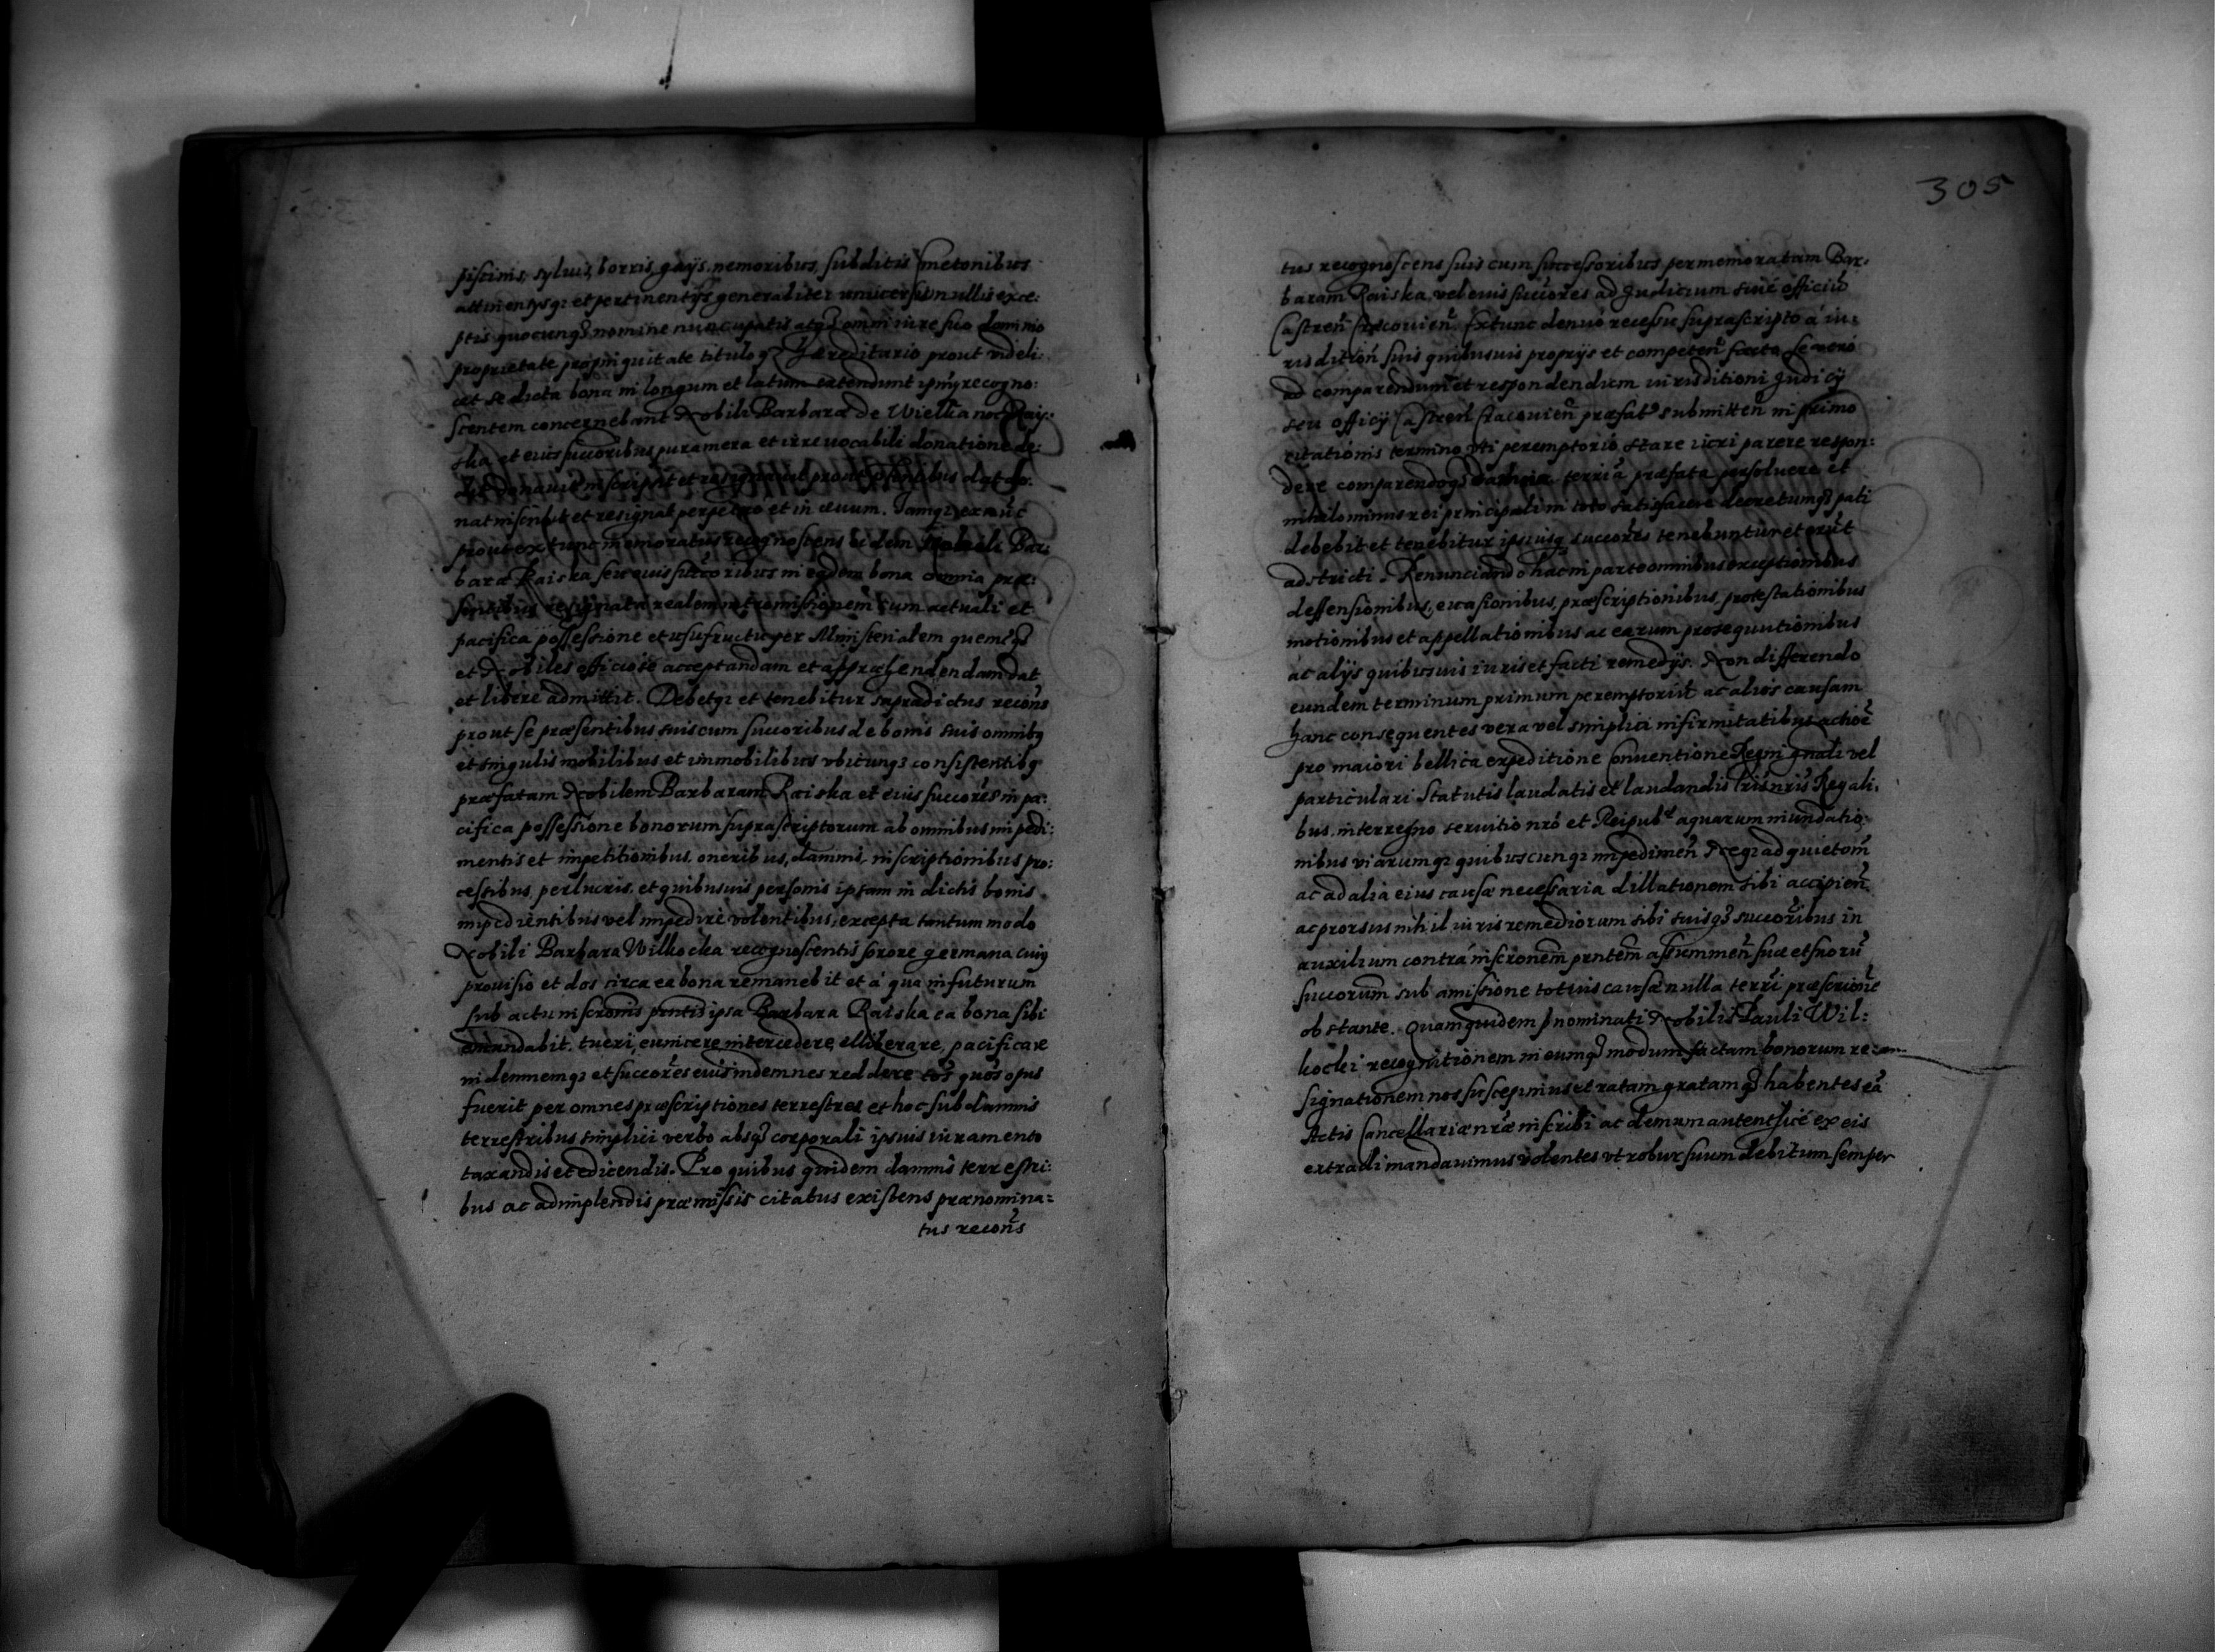 piscinis, syluis, borris, gaijs, nemoribus, subditis Cmetonibus
attinentijsq; et pertinentijs generaliter vniuersis nullis exce:
ptis quocunq; nomine nuncupatis atq; omni iure suo dominio
proprietate propinquitate titulo q; Hæreditario prout videli:
cet se dicta bona in longum et latum extendunt ipm̃q recogno:
scentem concernebant Nobili Barbaræ de Wielka noc Ray:
ska et eius succoribus pura mera et irreuocabili donatione de:
dit donauit inscripsit et resignauit prout p̃sentibus dat do:
nat inscribit et resignat perpetuo et in æuum. Iamq; ex nũc
prout ex tunc memoratus recognoscens eidem Nobili Bar:
baræ Raiska seu eius succoribus in eadem bona omnia præ:
sentibus resignata realem intromissionem cum actuali et
pacifica possessione et usufructu per Ministerialem quemcq;
et Nobiles officiose acceptandam et appræhendendam dat
et libere admittit. Debetq; et tenebitur supradictus recoñs
prout se præsentibus suis cum succoribus de bonis suis omnibq
et singulis mobilibus et immobilibus vbicunq; consistentibq
præfatam Nobilem Barbaram Raiska et eius succores̃ in pa:
cifica possessione bonorum suprascriptorum ab omnibus impedi:
mentis et impetitionibus, oneribus, damnis, inscriptionibus pro:
cessibus, perlucris, et quibusuis personis ipsam in dictis bonis
impedientibus vel impedire volentibus, excepta tantummodo
Nobili Barbara Wilkocka recognoscentis sorore germana cuiq
prouisio et dos circa ea bona remanebit et á qua in futurum
sub actu inscronis pntis ipsa Barbara Raiska ea bona sibi
emundabit. tueri, euincere intercedere, elliberare, pacificare
indemnemq; et succores̃ eius indemnes reddere to̊s quo̊s opus
fuerit per omnes præscriptiones terrestres et hoc sub damnis
terrestribus simplici verbo absq; corporali ipsuis iuramento
taxandis et edicendis. Pro quibus quidem damnis terrestri:
bus ac adimplendis præmissis citatus existens prænomina=
tus recoñs
305
tus recognoscens suis cum successoribus per memoratam Bar:
baram Raiska vel euis succores̃ ad Judicium siué officiũ
Castreñ Cracouieñ. Ex tunc denuó recessu suprascripto á iu:
risditioñ suis quibusuis proprijs et competeñ facto se veró
ad comparendum et respondendum iurisditioni Judicij
seu officij Castreñ Cracouieñ præfatq submitteñ in primo
citationis termino vti peremptorio stare iuri parere respon:
dere comparendoq; damna terria præfata persoluere et
nihilominus rei principali in toto satisfacere decretumq; pati
debebit et tenebitur ipsiusq succores̃ tenebuntur et erũt
adstricti. Renunciando hac in parte omnibus exceptionibus
deffensionibus, euasionibus, præscriptionibus, protestationibus
motionibus et appellationibus ac earum prosequutionibus
ac alijs quibusuis iuris et facti remedijs. Non differendo
eundem terminum primum peremptoriũ ac alios causam
hanc consequentes vera vel simplici infirmitatibus actioẽ
pro maiori bellica expeditione Conuentione Regni gnali vel
particulari Statutis laudatis et laudandis Lris nris Regali:
bus, interregno seruitio nró et Reipub^e aquarum inundatio:
nibus viarumq; quibuscunq; impedimeñ Neq; ad quietom̃
ac ad alia eius causæ necessaria dillationem sibi accipieñ
ac prorsus nihil iuris remediorum sibi suisq; succoribus in
auxilium contrá inscronem̃ pntem̃ assummeñ suæ et suorũ
succorum̃ sub amissione totius causæ nulla terri præscrione
obstante. Quamquidem pnominati Nobilis Pauli Wil:
kocki recognitionem in eumq; modum factam bonorum re:
signationem nos suscepimus et ratam gratam q; habentes eã
Actis Cancellariæ nræ inscribi ac demum autentice ex eis
extradi mandauimus volentes vt robur suum debitum semper